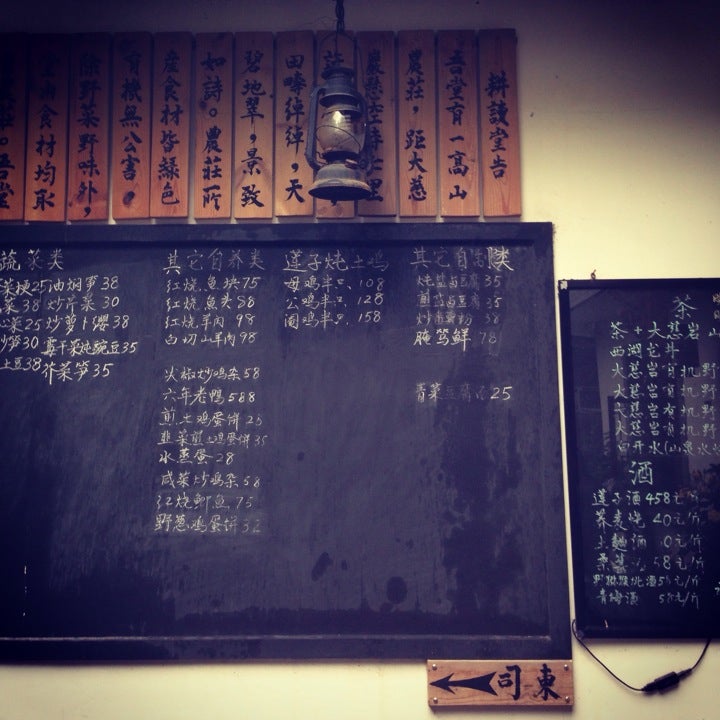 告
吾堂有一高山
農莊，距大慈
田疇綽綽，天
碧地翠，景致
如詩。農莊所
産食材皆緑色
有機無公害，
除野菜野味外，
食材均取
吾堂
蔬菜类
油焖笋38
菜38 炒芹菜30
菜25 炒萝卜缨38
炒笋30 霉干菜炖豌豆35
土豆38 芥菜笋35
其它自养类
红烧鱼块75
红烧鱼头88
红烧羊肉 98
白切山羊肉98
尖椒炒鸡杂58
六年老鸭588
煎土鸡蛋饼25
韭菜煎土鸡蛋饼35
水蒸蛋28
咸菜炒鸡杂58
红烧鲫鱼 75
野葱鸡蛋饼32
莲子炖土鸡
母鸡半只、108
公鸡半只、128
阉鸡半只、158
其它自 类
炖盐卤豆腐 35
煎盐卤豆腐 35
38
腌笃鲜 78
青菜豆腐 25
茶
茶+大慈岩山
西湖龙井
大慈岩有机野
大慈岩有机野
大慈岩有机野
大慈岩有机野
白开水(山泉水
酒
莲子酒 458元/斤
荞麦烧 40元/斤
酒 0元/斤
58元/斤
猕猴桃酒58元/斤
青梅酒 58元/斤
司東